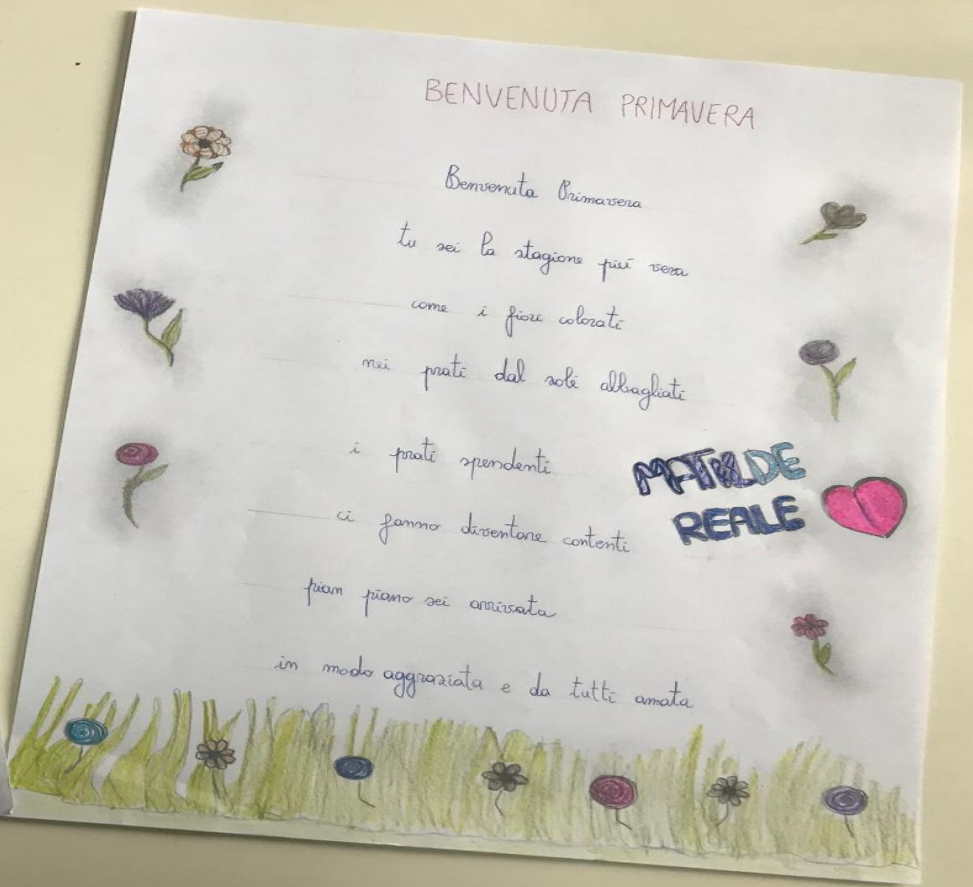 BENVENUTA PRIMAVERA
Benvenuta Primavera
tu sei la stagione piú vera
come i fiori colorati
nei prati dal sole abbagliati
i prati spendenti
ci fanno diventare contenti
pian piano sei arrivata
in modo aggraziata e da tutti amata
MATILDE
REALE